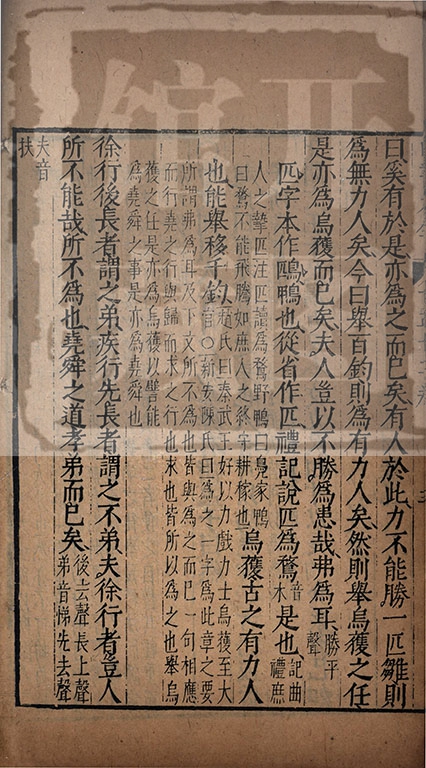 曰奚有於是亦爲之而已矣有人於此力不能勝一匹雛則
爲無力人矣今曰舉百鈞則爲有力人矣然則舉烏獲之任
是亦爲烏獲而已矣夫人豈以不勝爲患哉弗爲耳勝平聲
匹字本作鴄鴨也從省作匹禮記說匹爲鶩音木是也記曲禮庶
人之摯匹注匹讀爲鶩野鴨曰鳧家鴨曰鶩不能飛騰如庶人之終守耕稼也烏獲古之有力人
也能舉移千鈞趙氏曰秦武王好以力戲力士烏獲至大官○新安陳氏曰爲之一字爲此章之要
所謂弗爲耳及下文所不爲也皆與爲之而已一句相應
而行堯之行與歸而求之行也求也皆所以爲之也舉烏
獲之任是亦爲烏獲以譬能
爲堯舜之事是亦爲堯舜也
徐行後長者謂之弟疾行先長者謂之不弟夫徐行者豈人
所不能哉所不爲也堯舜之道孝弟而已矣後去聲長上聲弟音悌先去聲
夫音扶